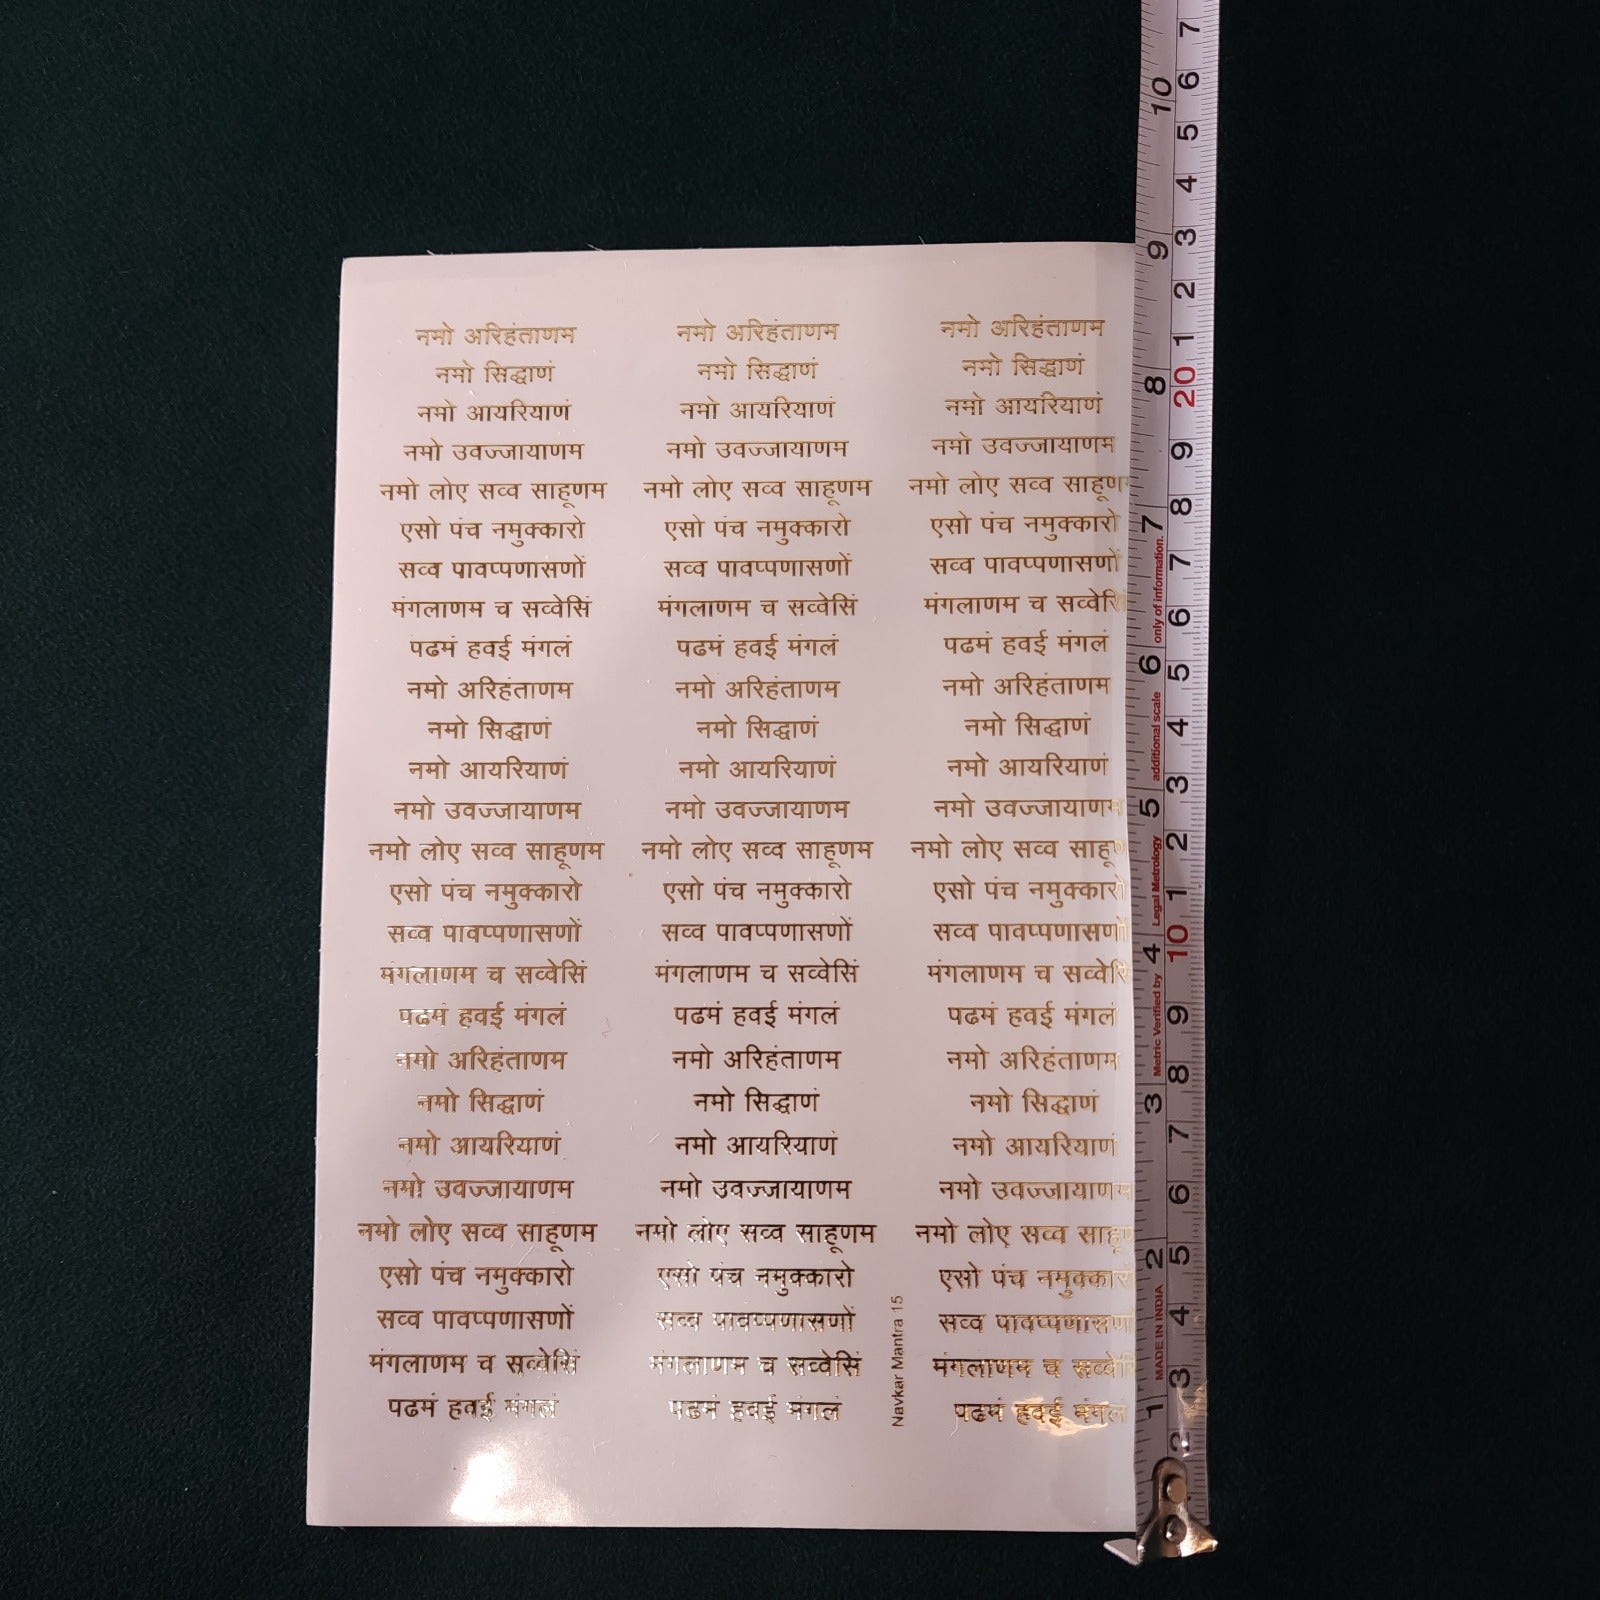 नमो अरिहंताणम नमो अरिहंताणम नमो अरिहंताणम
नमो सिद्धाणं नमो सिद्धाणं नमो सिद्धाणं
नमो आयरियाणं नमो आयरियाणं नमो आयरियाणं
नमो उवज्जायाणम नमो उवज्जायाणम नमो उवज्जायाणम
नमो लोए सव्व साहूणम नमो लोए सव्व साहूणम नमो लोए सव्व साहूणम
एसो पंच नमुक्कारो एसो पंच नमुक्कारो एसो पंच नमुक्कारो
सव्व पावप्पणासणों सव्व पावप्पणासणों सव्व पावप्पणासणों
मंगलाणम च सव्वेसिं मंगलाणम च सव्वेसिं मंगलाणम च सव्वेसिं
पढमं हवई मंगलं पढमं हवई मंगलं पढमं हवई मंगलं
नमो अरिहंताणम नमो अरिहंताणम नमो अरिहंताणम
नमो सिद्धाणं नमो सिद्धाणं नमो सिद्धाणं
नमो आयरियाणं नमो आयरियाणं नमो आयरियाणं
नमो उवज्जायाणम नमो उवज्जायाणम नमो उवज्जायाणम
नमो लोए सव्व साहूणम नमो लोए सव्व साहूणम नमो लोए सव्व
एसो पंच नमुक्कारो एसो पंच नमुक्कारो एसो पंच नमुक्कारो
सव्व पावप्पणासणों सव्व पावप्पणासणों सव्व पावप्पणासणों
मंगलाणम च सव्वेसिं मंगलाणम च सव्वेसिं मंगलाणम च सव्वेसिं
पढमं हवई मंगलं पढमं हवई मंगलं पढमं हवई मंगलं
नमो अरिहंताणम नमो अरिहंताणम नमो अरिहंताणम
नमो सिद्धाणं नमो सिद्धाणं नमो सिद्धाणं
नमो आयरियाणं नमो आयरियाणं नमो आयरियाणं
नमो उवज्जायाणम नमो उवज्जायाणम नमो उवज्जायाणम
नमो लोए सव्व साहूणम नमो लोए सव्व साहूणम नमो लोए सव्व
एसो पंच नमुक्कारो एसो पंच नमुक्कारो एसो पंच
सव्व पावप्पणासणों सव्व पावप्पणासणों सव्व
मंगलाणम च सव्वेसिं मंगलाणम च सव्वेसिं मंगलाणम च
पढमं हवई मंगलं पढमं हवई मंगलं पढमं हवई मंगलं
Navkar Mantra 15
7
6
10
5
4
3
9
2
1
8
20
9
8
7
7
6
6
5
4
3
5
2
1
4
10
9
8
3
7
6
2
5
4
3
1
2
MADE IN INDIA
Metric Verified by Legal Metrology
additional scale only of information.